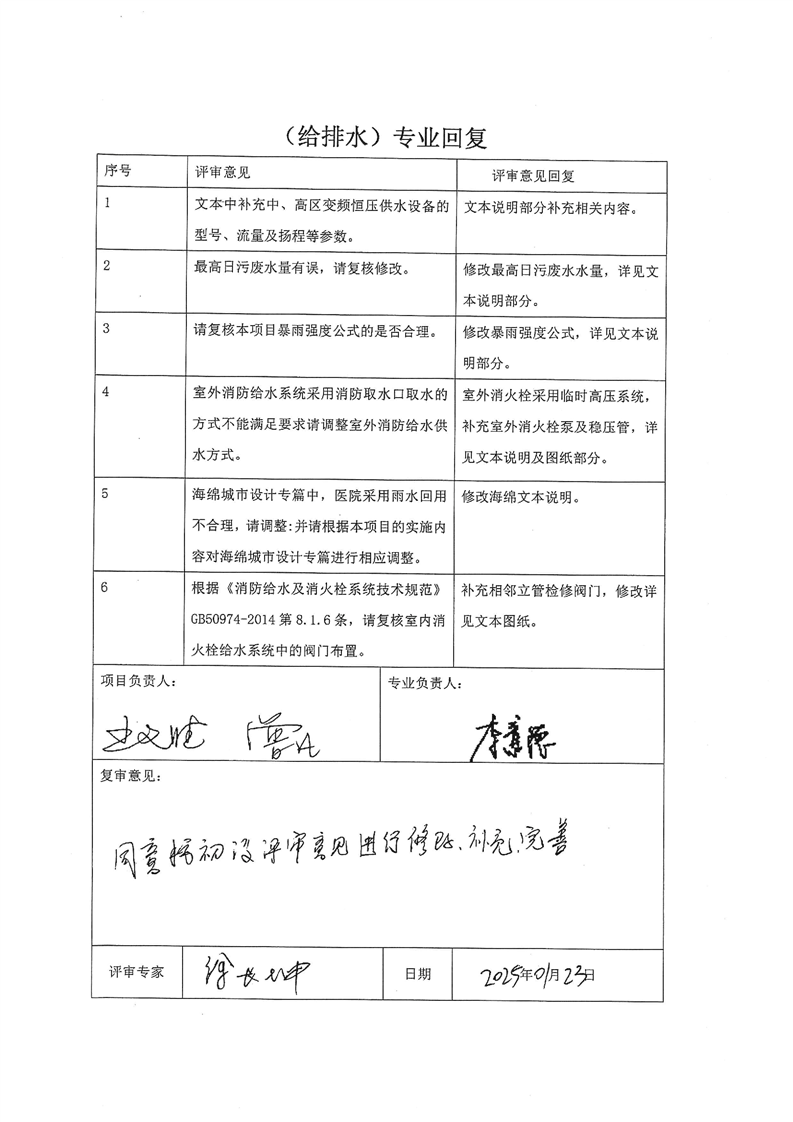 （给排水）专业回复
序号 评审意见 评审意见回复
1 文本中补充中、高区变频恒压供水设备的 文本说明部分补充相关内容。
型号、流量及扬程等参数。
2 最高日污废水量有误，请复核修改。 修改最高日污废水水量，详见文
本说明部分。
3 请复核本项目暴雨强度公式的是否合理。 修改暴雨强度公式，详见文本说
明部分。
4 室外消防给水系统采用消防取水口取水的 室外消火栓采用临时高压系统，
方式不能满足要求请调整室外消防给水供 补充室外消火栓泵及稳压管，详
水方式。 见文本说明及图纸部分。
5 海绵城市设计专篇中，医院采用雨水回用 修改海绵文本说明。
不合理，请调整；并请根据本项目的实施内
容对海绵城市设计专篇进行相应调整。
6 根据《消防给水及消火栓系统技术规范》 补充相邻立管检修阀门，修改详
GB50974-2014 第 8.1.6 条，请复核室内消 见文本图纸。
火栓给水系统中的阀门布置。
项目负责人： 专业负责人：
复审意见：
同意按初设评审意见进行修改、补充、完善
评审专家 日期 2025年01月23日